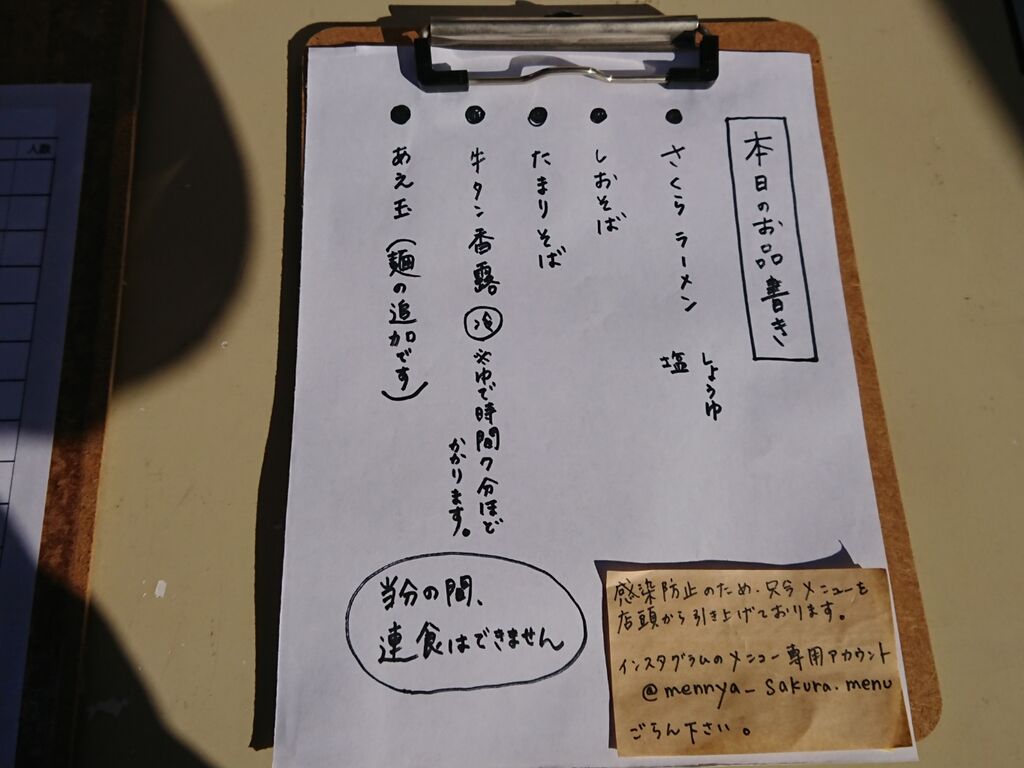 本日のお品書き
● さくらラーメン
しょうゆ
塩
● しおそば
● たまりそば
● 牛タン香露 冷 ※ゆで時間7分ほど
かかります。
● あえ玉 (麺の追加です)
当分の間、
連食はできません
感染防止のため、只今メニューを
店頭から引き上げております。
インスタグラムのメニュー専用アカウント
@mennya_sakura.menu
ごらん下さい。
人数